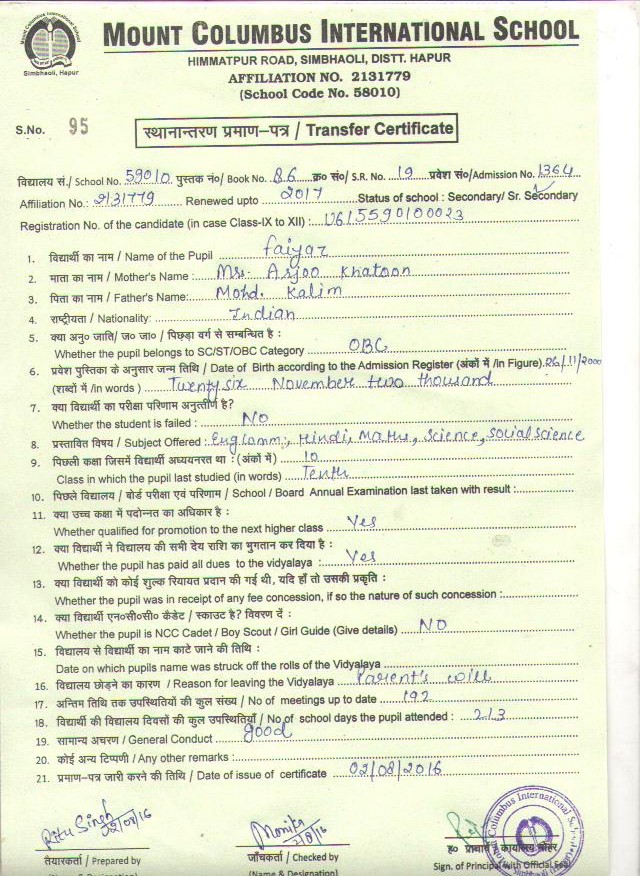 Mount Columbus International School
Simbhaoli, Hapur
MOUNT COLUMBUS INTERNATIONAL SCHOOL
HIMMATPUR ROAD, SIMBHAOLI, DISTT. HAPUR
AFFILIATION NO. 2131779
(School Code No. 58010)
S.No. 95
स्थानान्तरण प्रमाण-पत्र / Transfer Certificate
विद्यालय सं./ School No. 59010 पुस्तक नं०/ Book No. 86 क्र० सं०/ S.R. No. 19 प्रवेश सं०/Admission No. 1364
Affiliation No.: 2131779 Renewed upto 2017 Status of school : Secondary/ Sr. Secondary
Registration No. of the candidate (in case Class-IX to XII) : U6/5590100023
1. विद्यार्थी का नाम / Name of the Pupil faiyaz
2. माता का नाम / Mother's Name : Mrs. Arjoo Khatoon
3. पिता का नाम / Father's Name: Mohd. Kalim
4. राष्ट्रीयता / Nationality: Indian
5. क्या अनु० जाति/ ज० जा० / पिछड़ा वर्ग से सम्बन्धित है :
Whether the pupil belongs to SC/ST/OBC Category OBC
6. प्रवेश पुस्तिका के अनुसार जन्म तिथि / Date of Birth according to the Admission Register (अंकों में /in Figure). 26/11/2000
(शब्दों में /in words) Twenty six November two thousand
7. क्या विद्यार्थी का परीक्षा परिणाम अनुत्तीर्ण है?
Whether the student is failed : No
8. प्रस्तावित विषय / Subject Offered : Eng Comm:, Hindi, Maths, Science, Social Science
9. पिछली कक्षा जिसमें विद्यार्थी अध्ययनरत था : (अंकों में) 10
Class in which the pupil last studied (in words) Tenth
10. पिछले विद्यालय / बोर्ड परीक्षा एवं परिणाम / School / Board Annual Examination last taken with result :
11. क्या उच्च कक्षा में पदोन्नत का अधिकार है :
Whether qualified for promotion to the next higher class Yes
12. क्या विद्यार्थी ने विद्यालय की सभी देय राशि का भुगतान कर दिया है :
Whether the pupil has paid all dues to the vidyalaya : Yes
13. क्या विद्यार्थी को कोई शुल्क रियायत प्रवान की गई थी, यदि हाँ तो उसकी प्रकृति :
Whether the pupil was in receipt of any fee concession, if so the nature of such concession :
14. क्या विद्यार्थी एन०सी०सी० कैडेट / स्काउट है? विवरण दें :
Whether the pupil is NCC Cadet / Boy Scout / Girl Guide (Give details) NO
15. विद्यालय से विद्यार्थी का नाम काटे जाने की तिथि :
Date on which pupils name was struck off the rolls of the Vidyalaya
16. विद्यालय छोड़ने का कारण / Reason for leaving the Vidyalaya Parent's will
17. अन्तिम तिथि तक उपस्थितियों की कुल संख्य / No of meetings up to date 192
18. विद्यार्थी की विद्यालय दिवसों की कुल उपस्थितियाँ / No of school days the pupil attended : 213
19. सामान्य अचरण / General Conduct good
20. कोई अन्य टिप्पणी / Any other remarks :
21. प्रमाण-पत्र जारी करने की तिथि / Date of issue of certificate 02/08/2016
Ritu Singh
Monika
तैयारकर्ता / Prepared by
जाँचकर्ता / Checked by
Sign. of Principal with Official Seal
(Name & Designation)
Columbus International